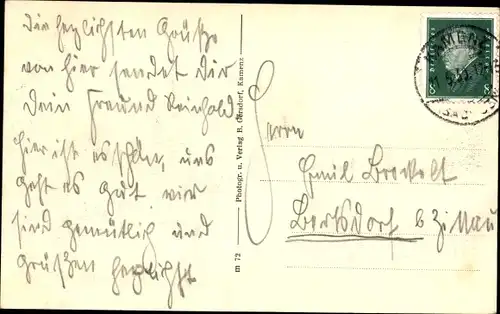 Die herzlichsten Grüße
von hier sendet Dir
Dein Freund Reinhold
hier ist es schön, uns
geht es gut. wir
sind gemütlich und
grüßen herzlichst.
m 72
Photogr. u. Verlag B. Gersdorf, Kamenz
KAMENZ
8
8
Herrn
Emil
Bertsdorf b Zittau